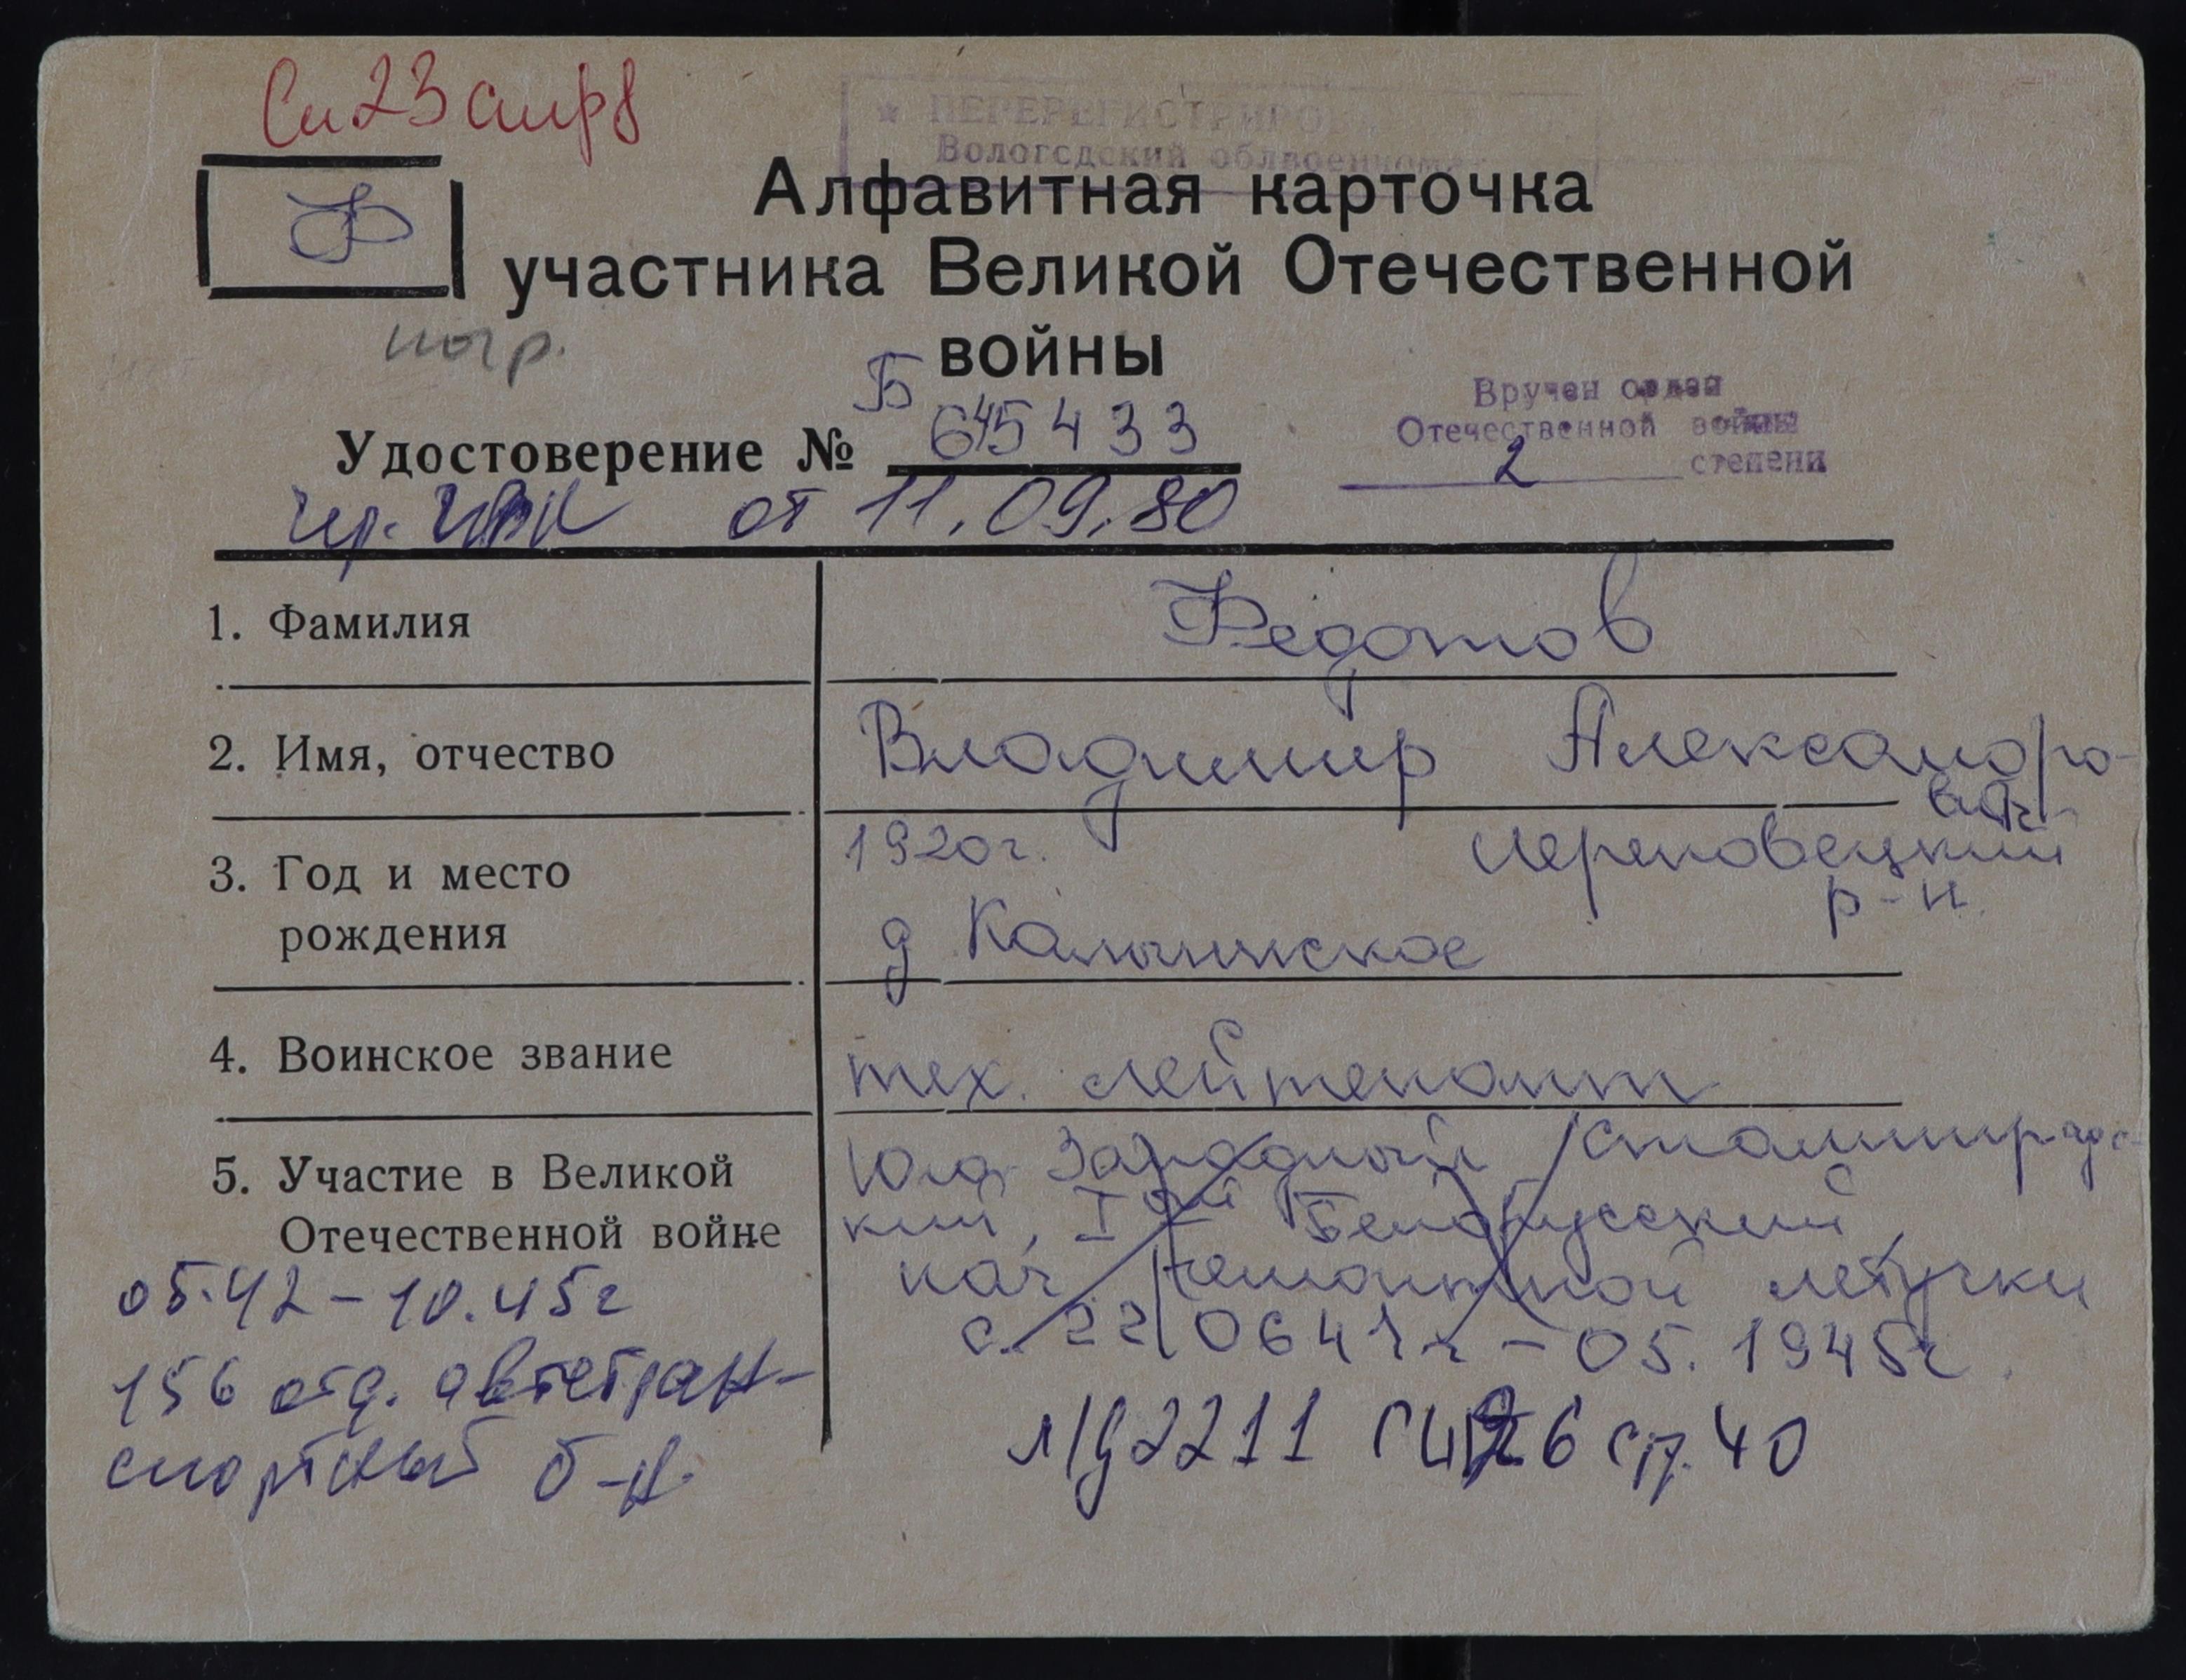 ПЕРЕРЕГИСТРИРО
Вологодский облвоенкомат
Ф
Алфавитная карточка
участника Великой Отечественной
войны
Б 645433
Удостоверение №
Вручен орден
Отечественной войны
2 степени
от 11.09.80
1. Фамилия
Федотов
2. Имя, отчество
Владимир Александро-
вич
3. Год и место
рождения
1920г. Череповецкий
р-н
д
4. Воинское звание
тех. лейтенант
5. Участие в Великой
Отечественной войне
Юго Западный Сталинградс-
кий, Iый Белорусский,
нач ремонтной летучки
с 22 0641г - 05. 1945г.
05.42-10.45г
156 отд. автотран-
спортный б-н.
л/д2211 стр. 40